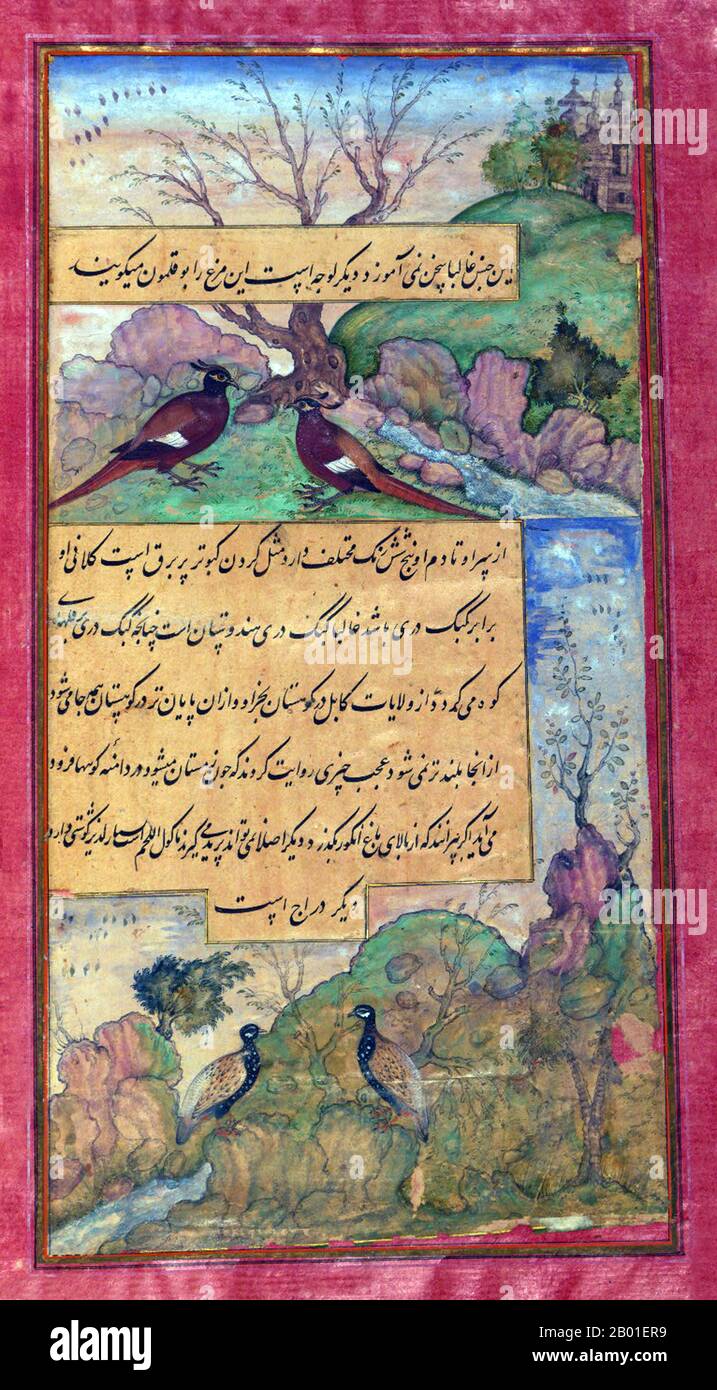 این جنس غالبا سخن نمی آموزد دیگر لوجه است این مرغ را بوقلمون میگویند
از سر او تا دم او پنج شش رنگ مختلف دارد مثل گردن کبوتر پر برق است کلانی او
برابر کبک دری باشد غالبا کبک دری هندوستان است چنانچه کبک دری بر
کوه میگردد از ولایات کابل در کوهستان بجراو و ازان پایان تر در کوهستان همه جا می شود
از انجا بلندتر نمی شود عجب چیزی روایت کردند که چون زمستان میشود در دامنه کوهها فرود
می آید اگر بپرانند که از بالای باغ انگور بگذرد دیگر اصلا نمی تواند پرید می گیرند ماکول اللحم است بسیار لذیذ گوشتی دارد
دیگر دراج است
alamy
alamy
a
a
a
alamy
Image ID: 2B01ER9
www.alamy.com